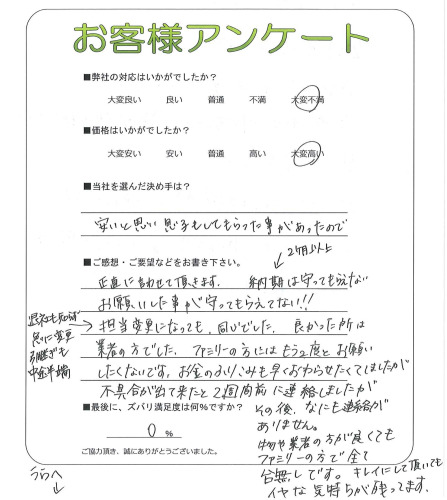 お客様アンケート
■弊社の対応はいかがでしたか？
大変良い 良い 普通 不満 大変不満
■価格はいかがでしたか？
大変安い 安い 普通 高い 大変高い
■当社を選んだ決め手は？
安いと思い 息子もしてもらった事があったので
■ご感想・ご要望などをお書き下さい。
2ヶ月以上
正直に言わせて頂きます。 納期は守ってもらえない
お願いした事が守ってもらえてない!!
急に変更
引継ぎも
中途半端
→ 担当変更になっても、同じでした。 良かった所は
業者の方でした。ファミリーの方にはもう2度とお願い
したくないです。お金のふりこみも早くおわらせたくてしましたが
不具合が出て来たと2週間前に連絡しましたが
■最後に、ズバリ満足度は何%ですか？
0 %
その後、なにも連絡が
ありません。
物や業者の方が良くても
ファミリーの方で全て
台無しです。キレイにして頂いても
イヤな気持ちが残ってます。
ご協力頂き、誠にありがとうございました。
うらへ
↓